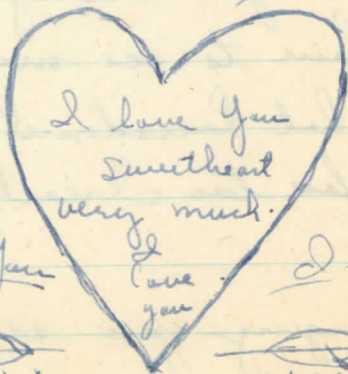 I love You
Sweetheart
very much.
I
love
you
You
I